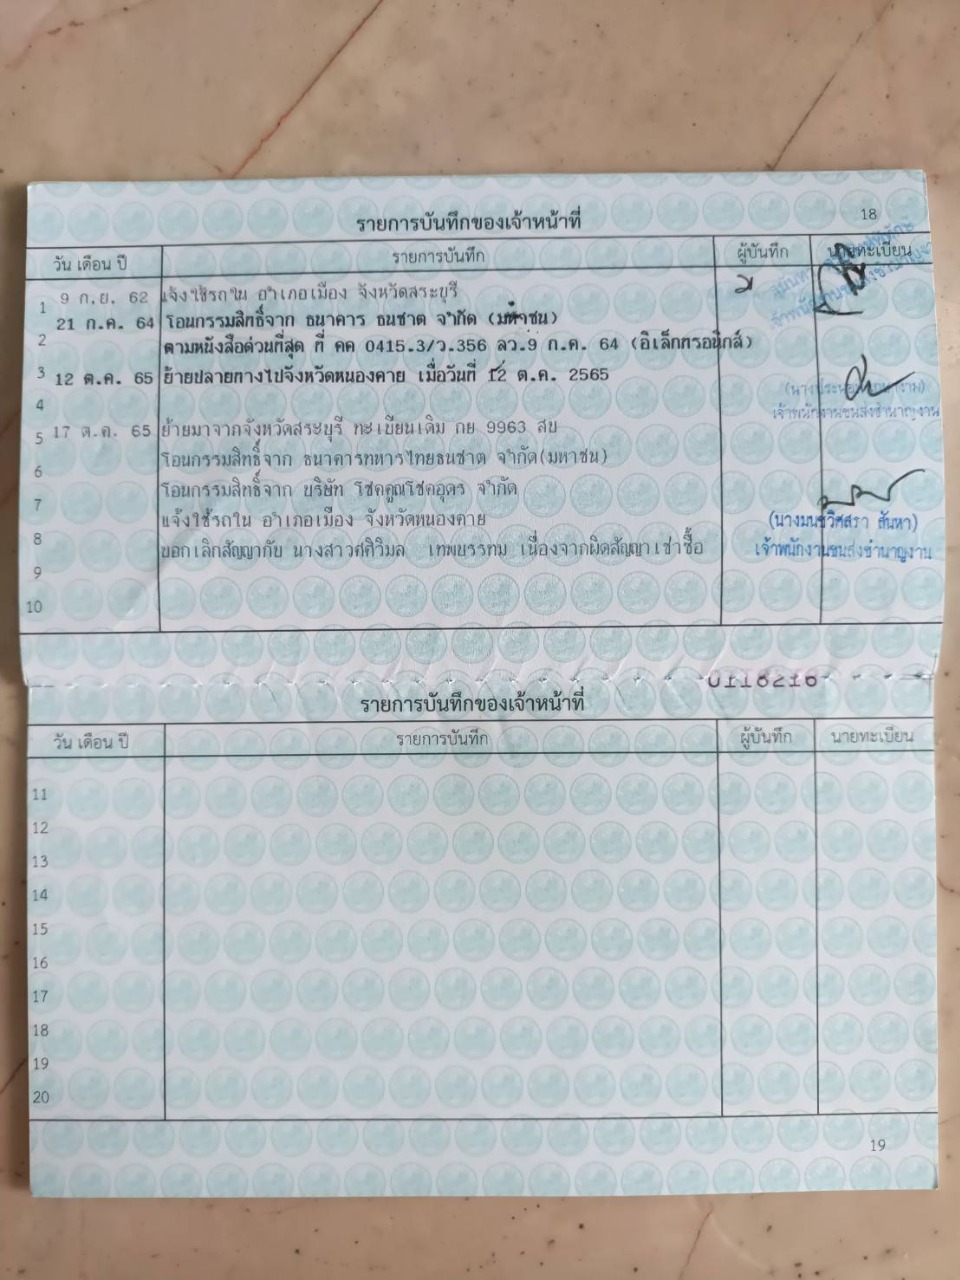 18
รายการบันทึกของเจ้าหน้าที่
วัน เดือน ปี รายการบันทึก ผู้บันทึก นายทะเบียน
1 9 ก.ย. 62 แจ้งใช้รถใน อำเภอเมือง จังหวัดสระบุรี
21 ก.ค. 64 โอนกรรมสิทธิ์จาก ธนาคาร ธนชาต จำกัด (มหาชน)
2 ตามหนังสือด่วนที่สุด ที่ คค 0415.3/ว.356 ลว.9 ก.ค. 64 (อิเล็กทรอนิกส์)
3 12 ต.ค. 65 ย้ายปลายทางไปจังหวัดหนองคาย เมื่อวันที่ 12 ต.ค. 2565
เจ้าพนักงานขนส่งชำนาญงาน
4
5 17 ต.ค. 65 ย้ายมาจากจังหวัดสระบุรี ทะเบียนเดิม กย 9963 สบ
6 โอนกรรมสิทธิ์จาก ธนาคารทหารไทยธนชาต จำกัด(มหาชน)
7 โอนกรรมสิทธิ์จาก บริษัท โชคคูณโชคอุดร จำกัด
8 แจ้งใช้รถใน อำเภอเมือง จังหวัดหนองคาย
บอกเลิกสัญญากับ นางสาวศศิวิมล เทพบรรทม เนื่องจากผิดสัญญาเช่าซื้อ
เจ้าพนักงานขนส่งชำนาญงาน
9
10
0118216
รายการบันทึกของเจ้าหน้าที่
วัน เดือน ปี รายการบันทึก ผู้บันทึก นายทะเบียน
11
12
13
14
15
16
17
18
19
20
19